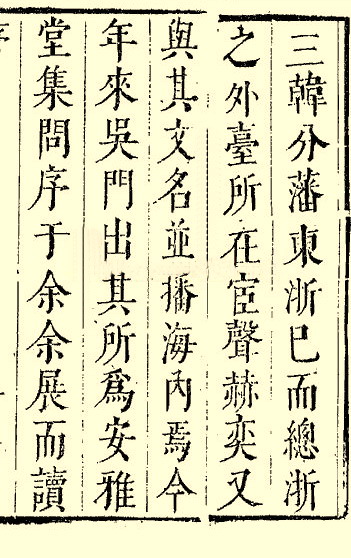 三韓分藩東浙已而總浙
之外臺所在宦聲赫奕又
與其文名並播海內焉今
年來吳門出其所爲安雅
堂集問序于余余展而讀